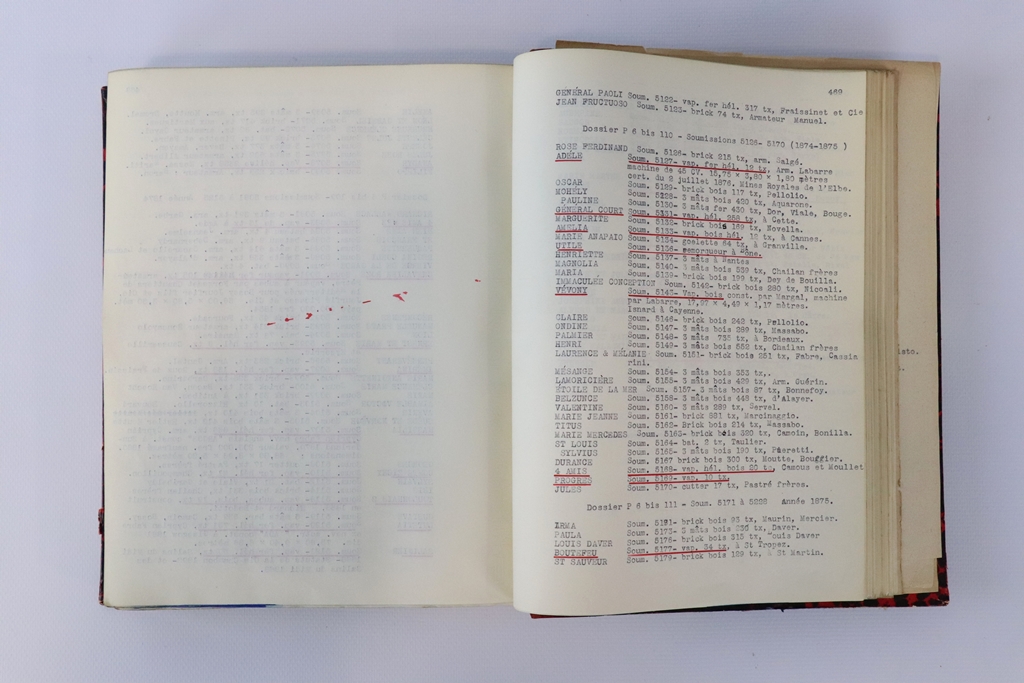 469
GENÉRAL PAOLI Soum. 5122- vap. fer hél. 317 tx, Fraissinet et Cie
JEAN FRUCTUOSO Soum. 5123- brick 74 tx, Armateur Manuel.
Dossier P 6 bis 110 - Soumissions 5126- 5170 (1874-1875 )
ROSE FERDINAND Soum. 5126- brick 215 tx, arm. Salgé.
ADÈLE Soum. 5127- vap. fer hél. 12 tx, Arm. Labarre
machine de 45 CV. 15,75 × 3,80 × 1,80 mètres
cert. du 2 juillet 1875. Mines Royales de l'Elbe.
OSCAR Soum. 5129- brick bois 117 tx, Pellolio.
MOHÉLY 3 mâts bois 420 tx, Aquarone.
PAULINE Soum. 5130- 3 mâts fer 430 tx, Dor, Viale, Bouge.
GÉNÉRAL COURT Soum. 5131- vap. hél. 258 tx, à Cette.
MARGUERITE brick bois 169 tx, Novella.
AMELIA Soum. 5133- vap. bois hél. 12 tx, à Cannes.
MARIE ANAPAIO Soum. 5134- goelette 64 tx, à Granville.
UTILE remorqueur à Bône.
HENRIETTE Soum. 5137- 3 mâts à Nantes
MAGNOLIA Soum. 5140- 3 mâts bois 539 tx, Chailan frères
MARIA Soum. 5139- brick bois 199 tx, Dey de Bouilla.
IMMACULÉE CONCEPTION Soum. 5142- brick bois 280 tx, Nicoali.
VÉVONY Soum. 5143- Vap. bois const. par Margal, machine
par Labarre, 17,97 × 4,49 × 1,17 mètres.
Isnard à Cayenne.
CLAIRE Soum. 5146- brick bois 242 tx, Pellolio.
ONDINE Soum. 5147- 3 mâts bois 289 tx, Massabo.
PALMIER Soum. 5148- 3 mâts 735 tx, à Bordeaux.
HENRI Soum. 5149- 3 mâts bois 552 tx, Chailan frères
LAURENCE & MÉLANIE Soum. 5151- brick bois 251 tx, Fabre, Cassin
rini.
MÉSANGE Soum. 5154- 3 mâts bois 353 tx,.
LAMORICIÈRE Soum. 5155- 3 mâts bois 429 tx, Arm. Guérin.
ÉTOILE DE LA MER Soum. 5157- 3 mâts bois 87 tx, Bonnefoy.
BELZUNCE Soum. 5158- 3 mâts bois 448 tx, d'Alayer.
VALENTINE Soum. 5160- 3 mâts 289 tx, Servel.
MARIE JEANNE Soum. 5161- brick 221 tx, Marcinaggio.
TITUS Soum. 5162- Brick bois 214 tx, Massabo.
MARIE MERCEDES Soum. 5163- brick bois 320 tx, Camoin, Bonilla.
ST LOUIS Soum. 5164- bat. 2 tx, Taulier.
SYLVIUS Soum. 5165- 3 mâts bois 190 tx, Pieretti.
DURANCE Soum. 5167 brick bois 300 tx, Moutte, Bouffier.
4 AMIS Soum. 5168- vap. hél. bois 20 tx, Camous et Moullet
PROGRES Soum. 5169- vap. 10 tx.
JULES Soum. 5170- cutter 17 tx, Pastré frères.
Dossier P 6 bis 111 - Soum. 5171 à 5222 Année 1875.
IRMA brick bois 93 tx, Maurin, Mercier.
PAULA Soum. 5173- 3 mâts bois 236 tx, Daver.
LOUIS DAVER Soum. 5176- brick bois 315 tx, Louis Daver
BOUTEFEU Soum. 5177- vap. 34 tx, à St Tropez.
ST SAUVEUR Soum. 5179- brick bois 129 tx, à St Martin.
isto.